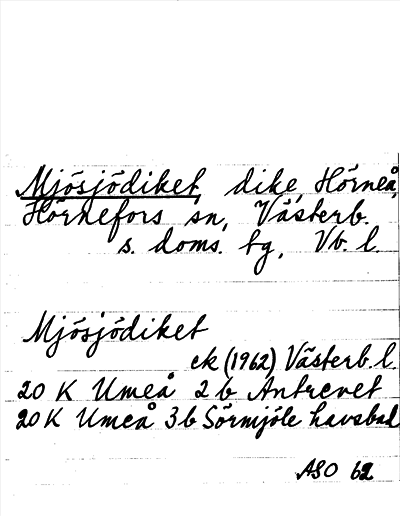 Mjösjödiket, dike, Hörneå,
Hörnefors sn, Västerb.
s. doms. tg, Vb. l.
Mjösjödiket
ek (1962) Västerb. l.
20 K Umeå 2b Antrevet
20 K Umeå 3b Sörmjöle havsbad
ASO 62